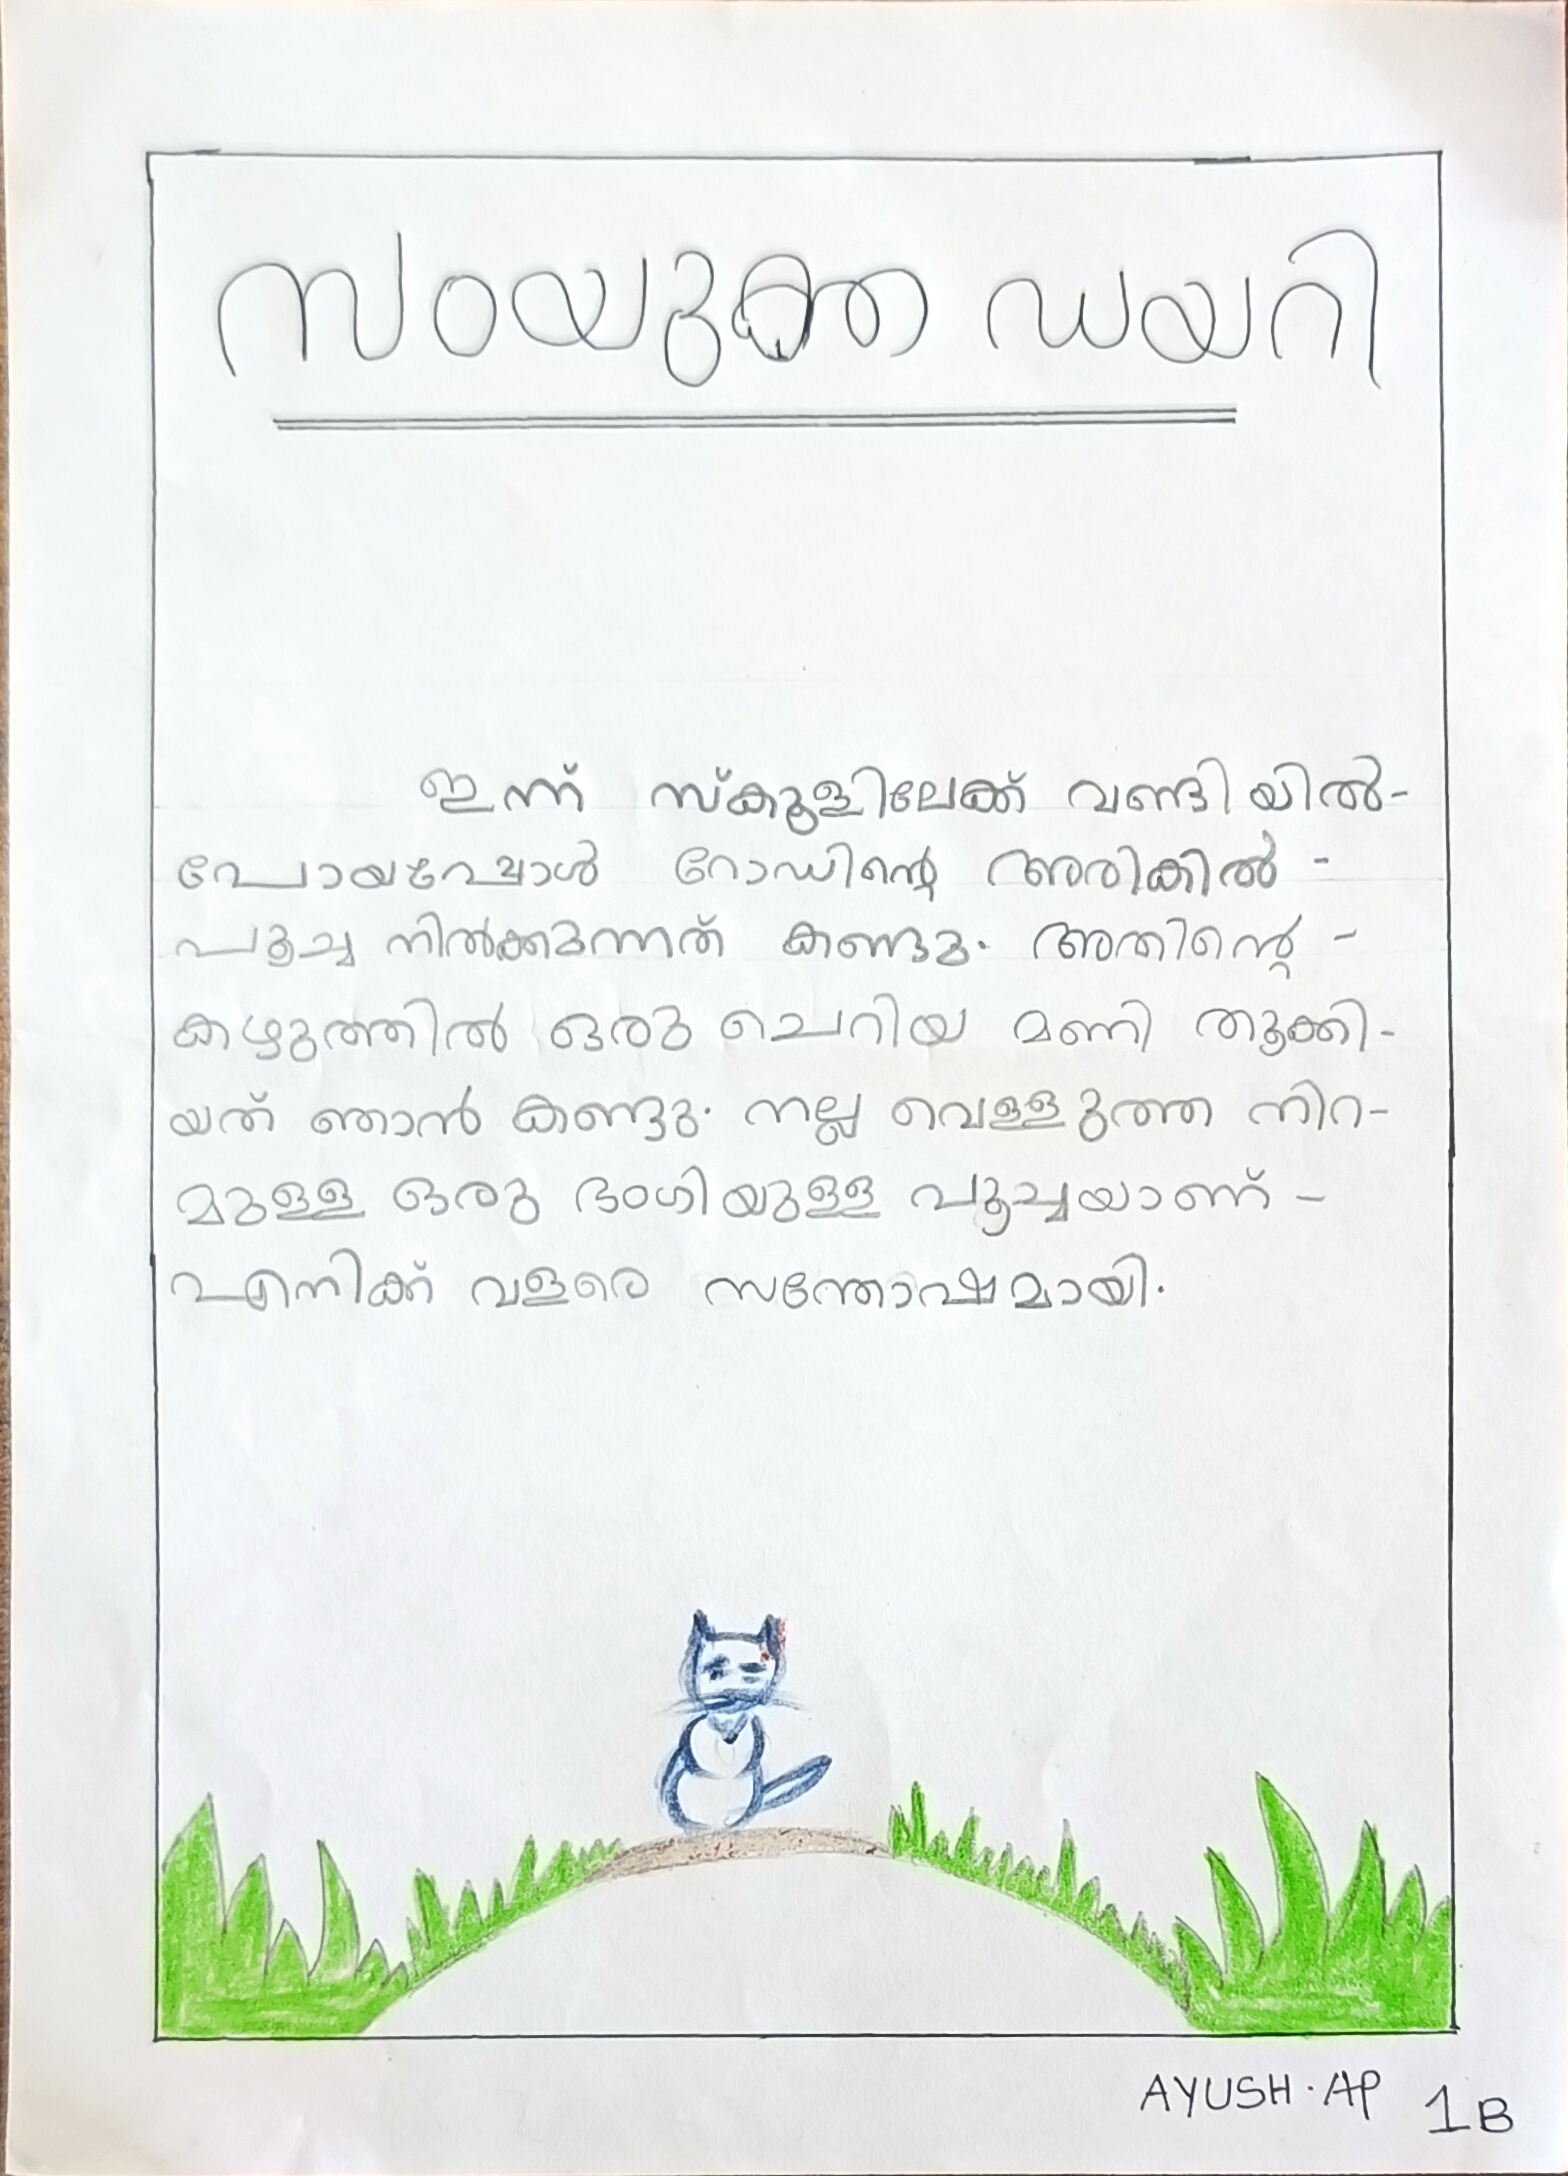 സംയുക്ത ഡയറി
ഇന്ന് സ്കൂളിലേക്ക് വണ്ടിയിൽ-
പോയപ്പോൾ റോഡിന്റെ അരികിൽ -
പൂച്ച നിൽക്കുന്നത് കണ്ടു. അതിന്റെ -
കഴുത്തിൽ ഒരു ചെറിയ മണി തൂക്കി-
യത് ഞാൻ കണ്ടു. നല്ല വെള്ളുത്ത നിറ-
മുള്ള ഒരു ഭംഗിയുള്ള പൂച്ചയാണ് -
എനിക്ക് വളരെ സന്തോഷമായി.
AYUSH.AP 1B